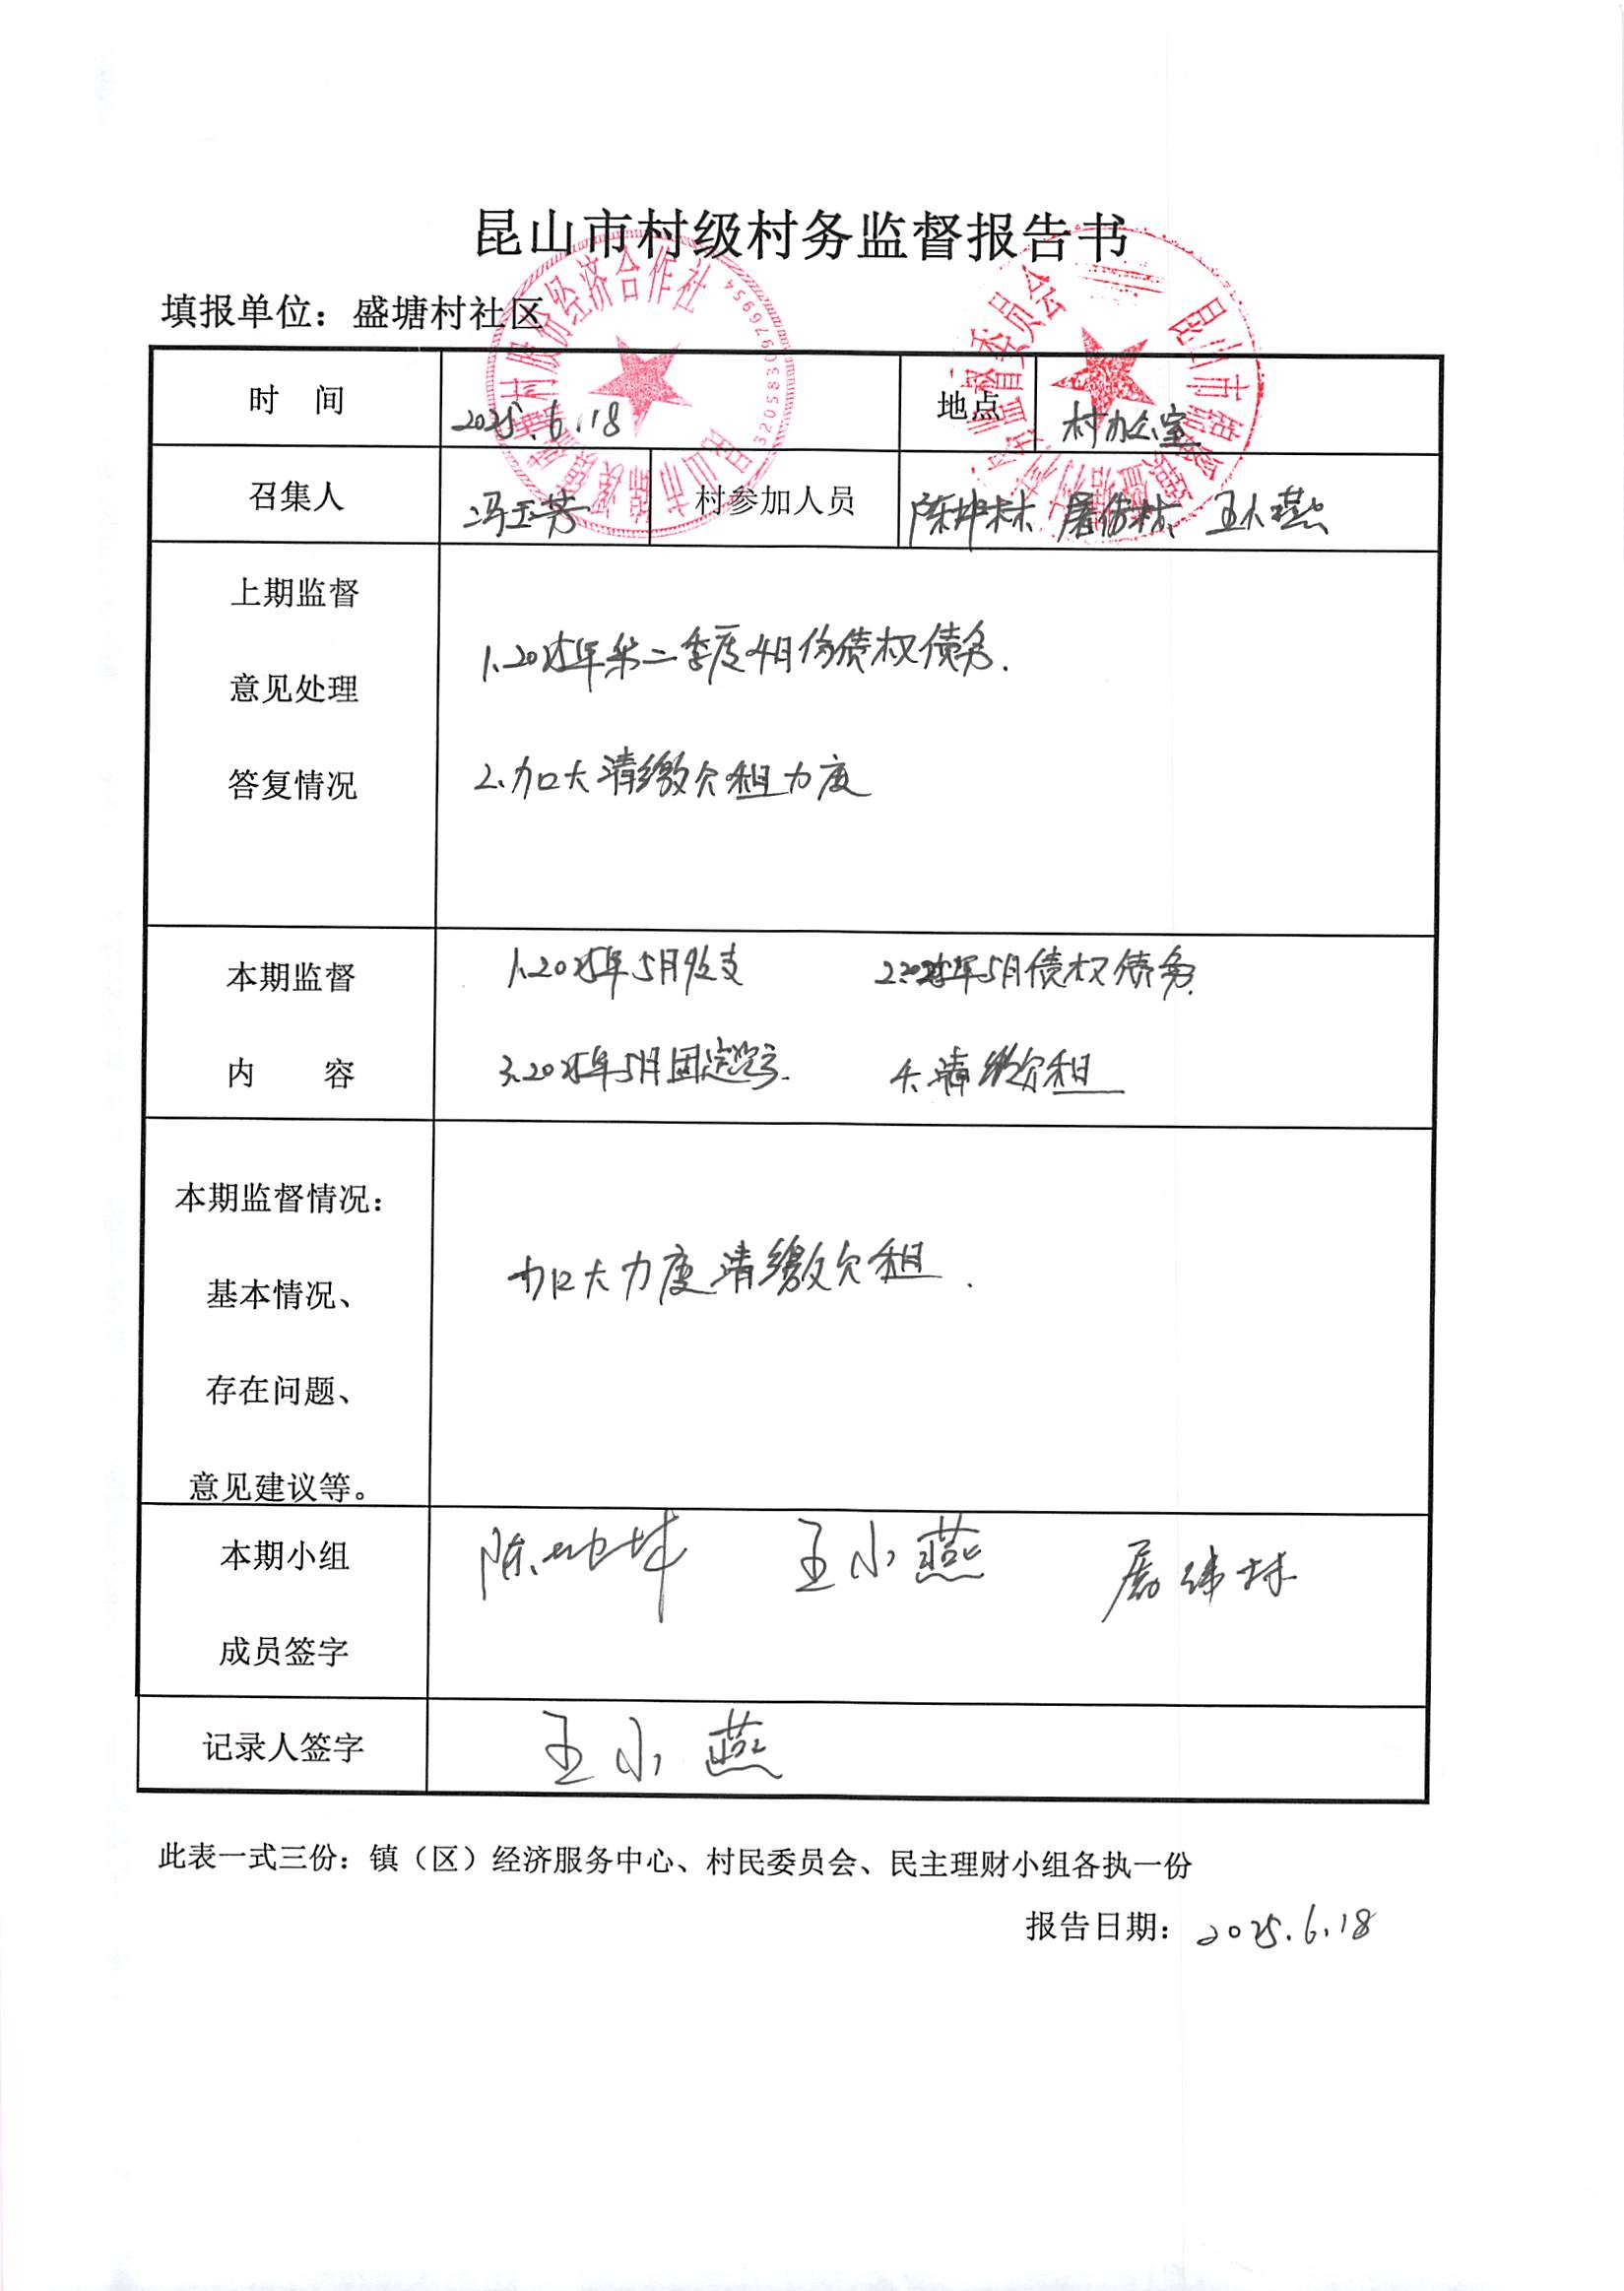 昆山市村级村务监督报告书
填报单位：盛塘村社区
时 间 2025.6.18 地点 村办公室
召集人 冯玉芳 村参加人员 王小燕
上期监督
意见处理
答复情况
1、2025年第二季度4月份债权债务.
2、加大清缴欠租力度
本期监督
内 容
1、2025年5月收支 2、2025年5月债权债务.
3、2025年5月固定资产. 4、清缴欠租
本期监督情况：
基本情况、
存在问题、
意见建议等。
加大力度清缴欠租.
本期小组
成员签字
王小燕
记录人签字 王小燕
此表一式三份：镇（区）经济服务中心、村民委员会、民主理财小组各执一份
报告日期：2025.6.18
村股份经济合作社
昆山市
3205830976954
昆山市
监督委员会